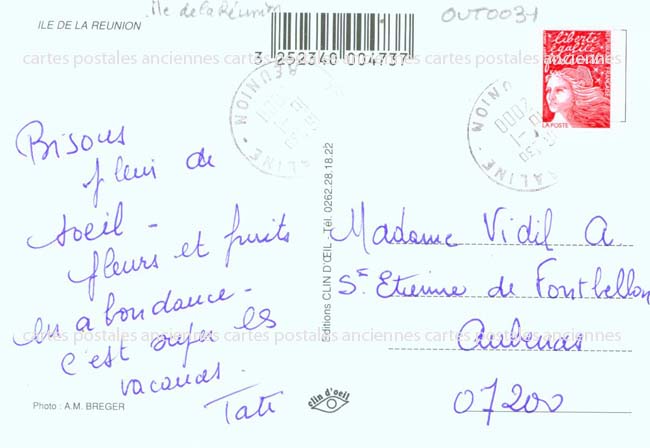 ILE DE LA REUNION
Ile de la Réunion
OUT003-1
3 252340 004737
liberté
égalité
fraternité
LA POSTE
REUNION
ALINE - REUNION
2000
cartes postales anciennes cartes postales anciennes cartes postales anciennes
Bisous
plein de
soeil -
fleurs et fruits
en abondance -
c'est super les
vacances.
Tati
Editions CLIN D'ŒIL - Tél. 0262.28.18.22
Madame Vidil A.
St Etienne de Fontbellon
Aubenas
07200
cartes postales anciennes cartes postales anciennes cartes postales anciennes
Photo : A.M. BREGER
clin d'oeil